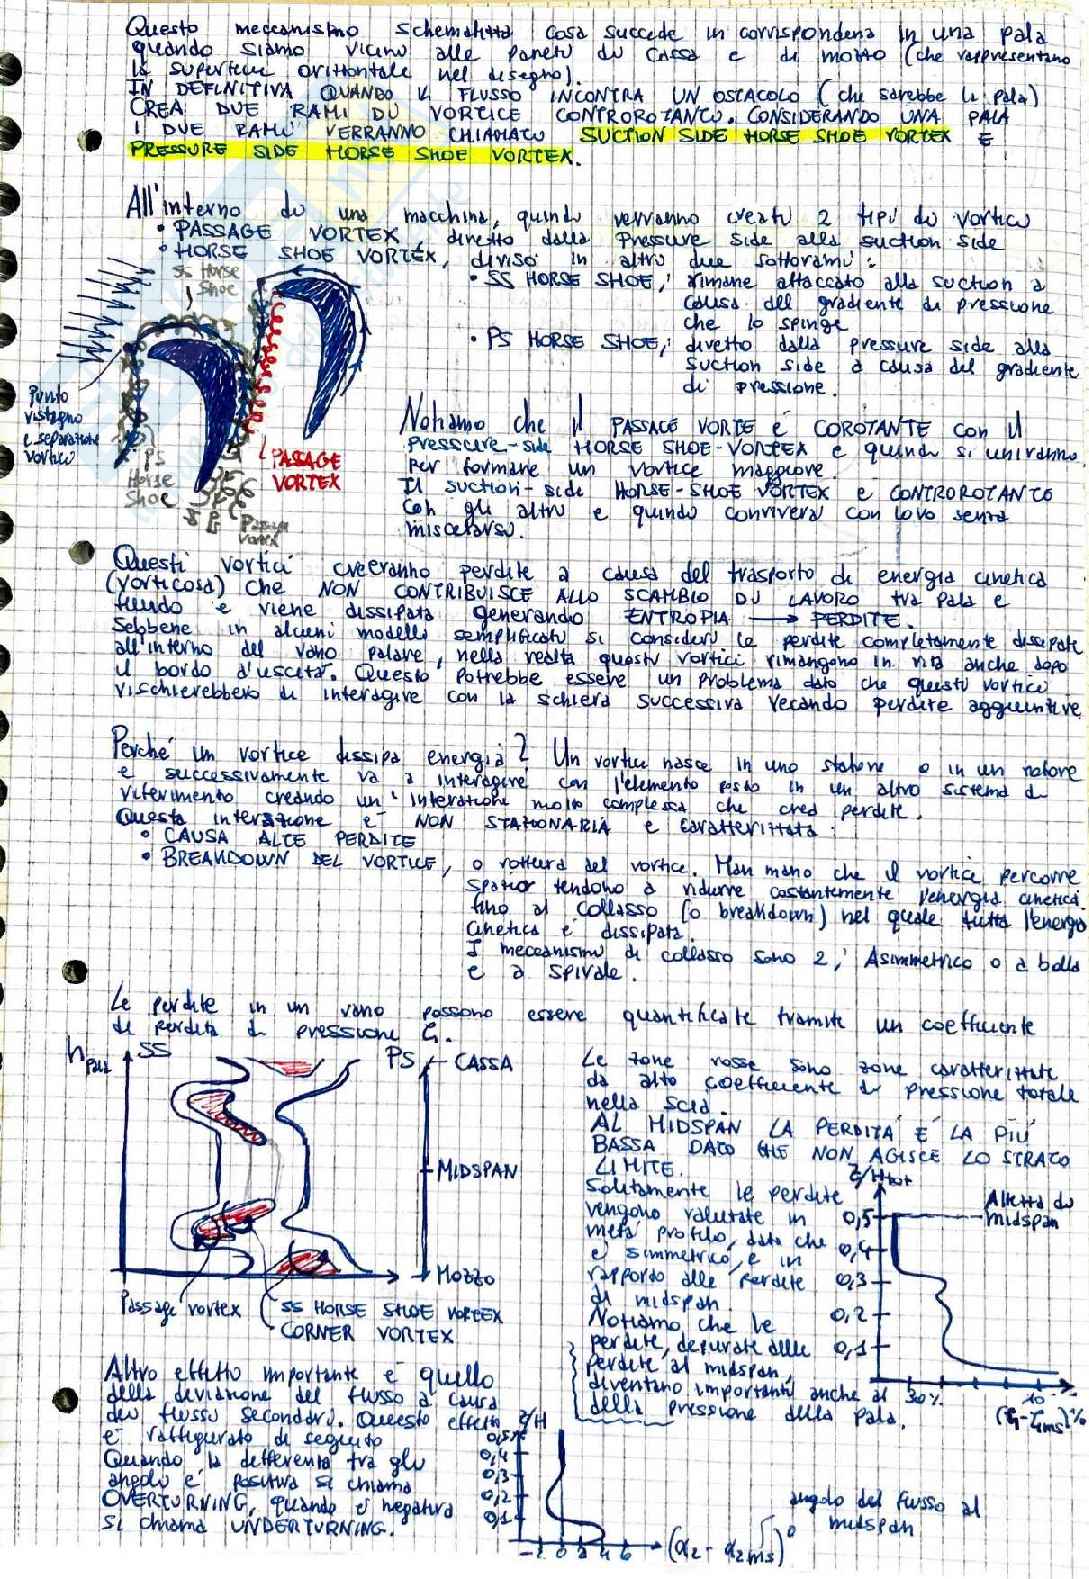 Questo meccanismo schematizza cosa succede in corrispondenza in una pala
quando siamo vicino alle pareti di cassa e di mozzo (che rappresentano
la superficie orizzontale nel disegno).
IN DEFINITIVA QUANDO IL FLUSSO INCONTRA UN OSTACOLO (che sarebbe la pala)
CREA DUE RAMI DI VORTICE CONTROROTANTI. CONSIDERANDO UNA PALA
I DUE RAMI VERRANNO CHIAMATI SUCTION SIDE HORSE SHOE VORTEX E
PRESSURE SIDE HORSE SHOE VORTEX.
All'interno di una macchina, quindi verranno creati 2 tipi di vortici
• PASSAGE VORTEX, diretto dalla Pressure side alla suction side
• HORSE SHOE VORTEX, diviso in altri due sottorami:
• SS HORSE SHOE, rimane attaccato alla suction a
causa del gradiente di pressione
che lo spinge
• PS HORSE SHOE, diretto dalla pressure side alla
suction side a causa del gradiente
di pressione.
SS Horse
Shoe
Punto
ristagno
e separazione
vortici
PS
Horse
Shoe
PASSAGE
VORTEX
Passage
vortex
Notiamo che il PASSAGE VORTE è COROTANTE con il
pressure-side HORSE SHOE-VORTEX e quindi si uniranno
per formare un vortice maggiore.
Il suction-side HORSE-SHOE VORTEX è CONTROROTANTE
con gli altri e quindi conviverà con loro senza
miscelarsi.
Questi vortici creeranno perdite a causa del trasporto di energia cinetica
(vorticosa) che NON CONTRIBUISCE ALLO SCAMBIO DI LAVORO tra pala e
fluido e viene dissipata generando ENTROPIA → PERDITE.
Sebbene in alcuni modelli semplificati si consideri le perdite completamente dissipate
all'interno del vano palare, nella realtà questi vortici rimangono in vita anche dopo
il bordo d'uscita. Questo potrebbe essere un problema dato che questi vortici
rischierebbero di interagire con la schiera successiva recando perdite aggiuntive
Perché un vortice dissipa energia? Un vortice nasce in uno statore o in un rotore
e successivamente va a interagire con l'elemento posto in un altro sistema di
riferimento creando un' interazione molto complessa che crea perdite.
Questa interazione è NON STAZIONARIA e caratterizzata:
• CAUSA ALTE PERDITE
• BREAKDOWN DEL VORTICE, o rottura del vortice. Man mano che il vortice percorre
spazio tendono a ridurre costantemente l'energia cinetica
fino al collasso (o breakdown) nel quale tutta l'energia
cinetica è dissipata.
I meccanismi di collasso sono 2, Asimmetrico o a bolla
e a spirale.
Le perdite in un vano possono essere quantificate tramite un coefficiente
di perdita di pressione ζ.
h PALA
SS
PS
CASSA
MIDSPAN
MOZZO
Passage vortex
SS HORSE SHOE VORTEX
CORNER VORTEX
Le zone rosse sono zone caratterizzate
da alto coefficiente di pressione totale
nella scia.
AL MIDSPAN LA PERDITA È LA PIÙ
BASSA DATO CHE NON AGISCE LO STRATO
LIMITE.
Solitamente le perdite
vengono valutate in
metà profilo, dato che
è simmetrico, e in
rapporto alle perdite
di midspan.
Notiamo che le
perdite, depurate delle
perdite al midspan,
diventano importanti anche al 30%
della pressione della pala.
Z/Htot
0,5
0,4
0,3
0,2
0,1
Altezza di
midspan
10
(ζ-ζms)%
Altro effetto importante è quello
della deviazione del flusso a causa
dei flussi secondari. Questo effetto
è raffigurato di seguito
Quando la differenza tra gli
angoli è positiva si chiama
OVERTURNING, quando è negativa
si chiama UNDERTURNING.
Z/H
0,5
0,4
0,3
0,2
0,1
-2 0 2 4 6
(α2 - α2ms)°
angolo del flusso al
midspan